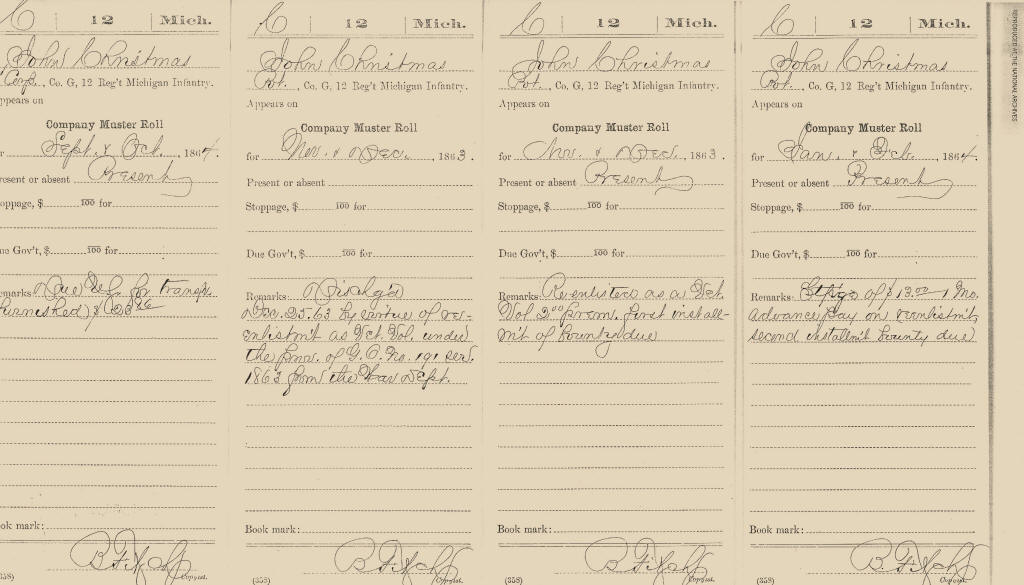 C | 12 | Mich.
John Christmas
Corp., Co. G, 12 Reg't Michigan Infantry.
Appears on
Company Muster Roll
Sept. & Oct., 1864.
Present or absent Present
Stoppage, $ 100 for
Due Gov't, $ 100 for
Remarks: Due U.S. for transpt.
furnished $
Book mark:
(358) Copyist.
C | 12 | Mich.
John Christmas
Pvt., Co. G, 12 Reg't Michigan Infantry.
Appears on
Company Muster Roll
for Nov. & Dec., 1863.
Present or absent
Stoppage, $ 100 for
Due Gov't, $ 100 for
Remarks: Disch'g'd
Dec. 25.63 by virtue of re-
enlistm't as Vet. Vol. under
the prov. of G.O. No. 191 ser.
1863 from the War Dept.
Book mark:
(358) Copyist.
C | 12 | Mich.
John Christmas
Pvt., Co. G, 12 Reg't Michigan Infantry.
Appears on
Company Muster Roll
for Nov. & Dec., 1863.
Present or absent Present
Stoppage, $ 100 for
Due Gov't, $ 100 for
Remarks: Re-enlisted as a Vet.
Vol. 2 00 prem. first install-
m't of bounty due
Book mark:
(358) Copyist.
C | 12 | Mich.
John Christmas
Pvt., Co. G, 12 Reg't Michigan Infantry.
Appears on
Company Muster Roll
for Jan. & Feb., 1864.
Present or absent Present
Stoppage, $ 100 for
Due Gov't, $ 100 for
Remarks: of $13.00 1 Mo.
advance pay on reenlistm't,
second installm't bounty due
Book mark:
(358) Copyist.
REPRODUCED AT THE NATIONAL ARCHIVES